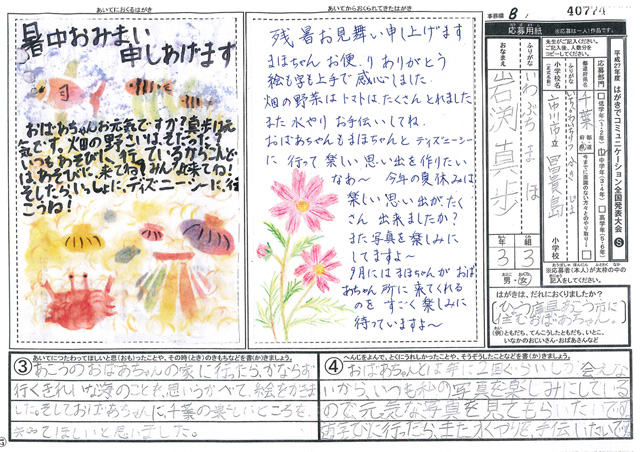 あいてにおくるはがき
暑中おみまい
申しあげます
おばあちゃんお元気ですか?真歩は元
気です。畑の野さいは、そだった?
いつもあそびに行っているからこんど
は、あそびに来てね!みんな来てね!
そしたらいっしょに、ディズニーシーに行
こうね!
あいてからおくられてきたはがき
残暑お見舞い申し上げます
まほちゃん お便りありがとう
絵も字も上手で感心しました。
畑の野菜はトマトはたくさんとれました
また水やりお手伝いしてね。
おばあちゃんもまほちゃんとディズニーシー
に行って楽しい思い出を作りたい
なぁ〜 今年の夏休みは
楽しい思い出がたく
さん出来ましたか?
また写真を楽しみに
してますよ〜
9月にはまほちゃんがおば
あちゃん所に来てくれる
のをすごく楽しみに
待っていますよ〜
事務欄
8
40774
応募用紙
平成27年度 はがきでコミュニケーション全国発表大会 S
応募部門
低学年(1・2年)
中学年(3・4年)
高学年(5・6年)
都道府県名
千葉
小学校名
市川市立
小学校
ふりがな
いわぶち まほ
おなまえ
岩渕真歩
3年
3組
男・女
※応募者(本人)が太枠の中の
記入をしてください。
はがきは、だれにおくりましたか?
(例)ともだち、てんこうしたともだち、いとこ、
いなかのおじいさん・おばあさんなど
③
あいてにつたわってほしいと思(おも)ったことや、その時(とき)のきもちなどを書(か)きましょう。
あこうのおばあちゃんの家に行ったら、かならず
行くきれいな海のことを、思いうかべて、絵をかきま
した。そしておばあちゃんに、千葉の楽しいところを、
知ってほしいと思いました。
④
へんじをよんで、とくにうれしかったことや、そうぞうしたことなどを書(か)きましょう。
おばあちゃんとは年に2回くらいしか会えな
いから、いつも私の写真を楽しみにしている
ので元気な写真を見てもらいたいです。